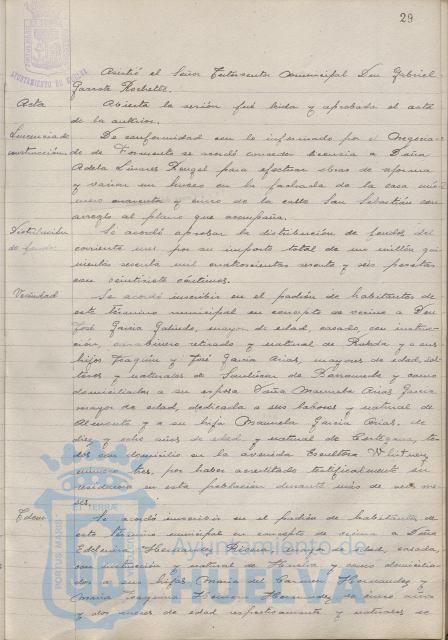 29
Asistió el Señor Interventor municipal Don Gabriel
Garrote Rochelle.
Acta Abierta la sesión fué leida y aprobada el acta
de la anterior.
Licencia de construcción De conformidad con lo informado por el Negocia-
do de Fomento se acordó conceder licencia a Doña
Adela Linares Rengel para efectuar obras de reforma
y variar un hueco en la fachada de la casa nú-
mero cuarenta y cinco de la calle San Sebastián con
arreglo al plano que acompaña.
Distribución de fondos Se acordó aprobar la distribución de fondos del
corriente mes por su importe total de un millón qui-
nientas sesenta mil cuatrocientas sesenta y seis pesetas
con veintisiete céntimos.
Vecindad Se acordó inscribir en el padrón de habitantes de
este término municipal en concepto de vecino a Don
José García mayor de edad, casado, con instruc-
ción, carabinero retirado y natural de y a sus
hijos Joaquín y José García Arias, mayores de edad, sol-
teros y naturales de Sanlúcar de Barrameda y como
domiciliados a su esposa Doña Manuela Arias García
mayor de edad, dedicada a sus labores y natural de
y a su hija Manuela García Arias, de
diez y ocho años de edad y natural de Cortegana, to-
dos con domicilio en la avenida Escultora Whitney
número tres, por haber acreditado testificalmente su
residencia en esta población durante más de seis me-
ses.
Idem Se acordó inscribir en el padrón de habitantes de
este término municipal en concepto de vecina a Doña
Hernández mayor de edad, casada,
con instrucción y natural de Huelva y como domicilia-
dos a sus hijas María del Carmen Hernández y
María Hernández de cinco años
y dos meses de edad respectivamente y naturales de
Ayuntamiento de
HUELVA